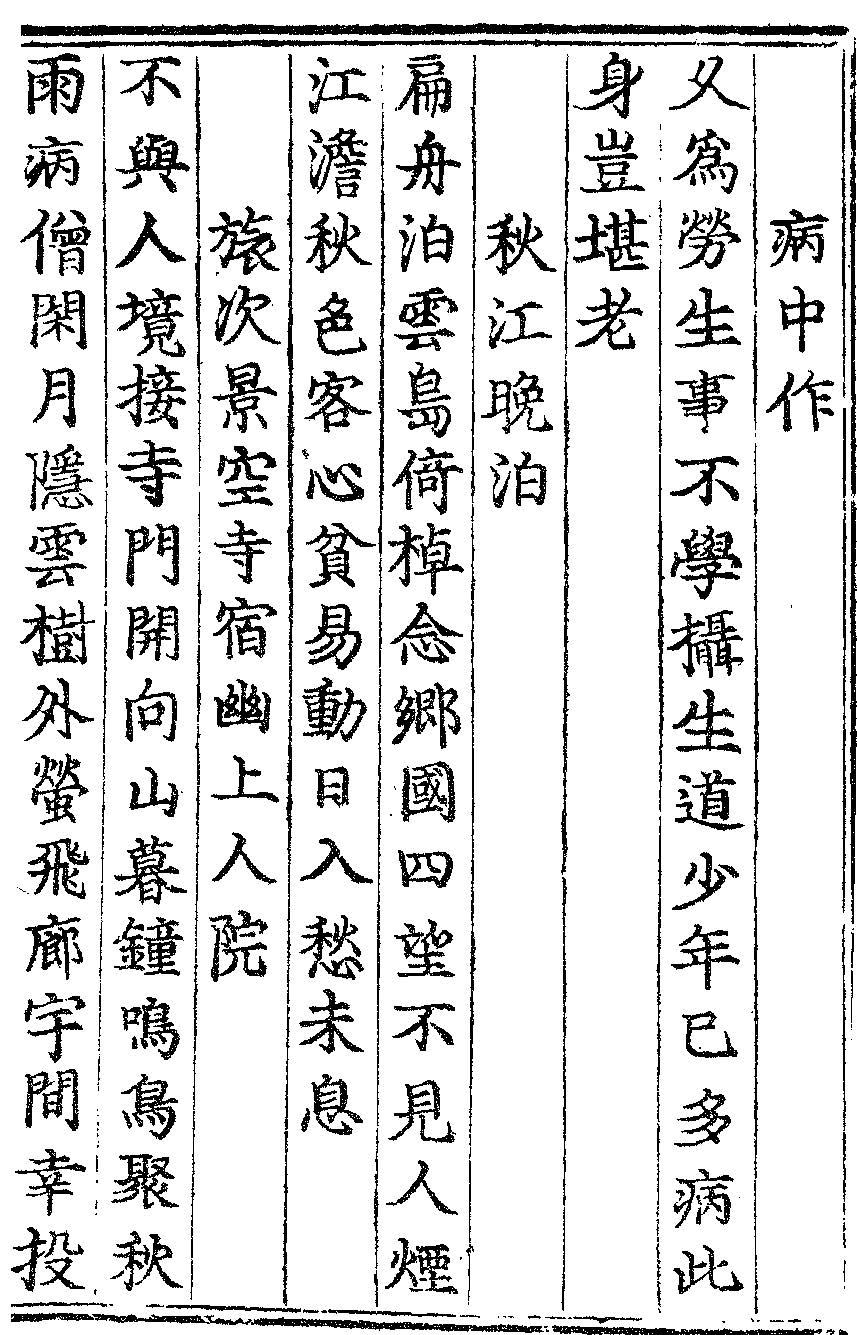 病中作
久爲勞生事不學攝生道少年已多病此
身豈堪老
秋江晚泊
扁舟泊雲島倚棹念鄉國四望不見人煙
江澹秋色客心貧易動日入愁未息
旅次景空寺宿幽上人院
不與人境接寺門開向山暮鐘鳴鳥聚秋
雨病僧閑月隱雲樹外螢飛廊宇間幸投